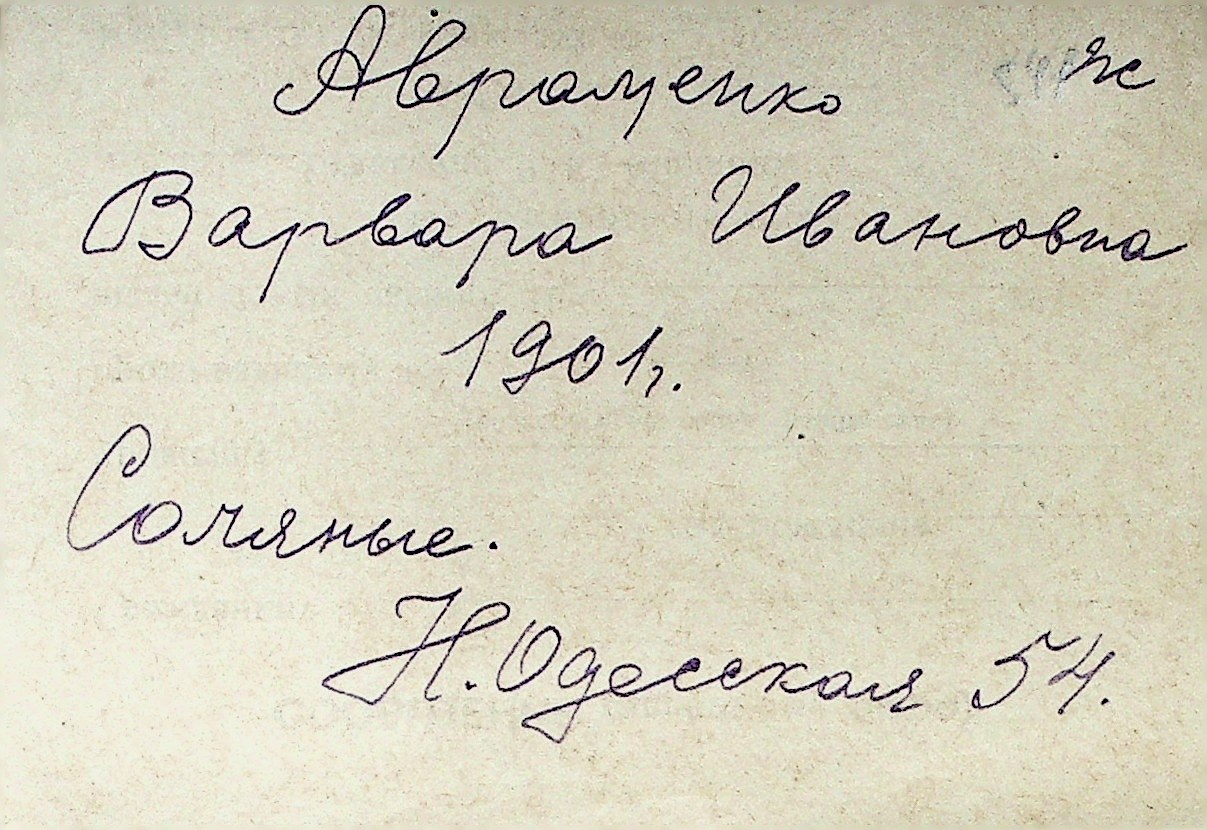 Авраменко
Варвара Ивановна
1901г.
Соляные.
Н. Одесская 54.